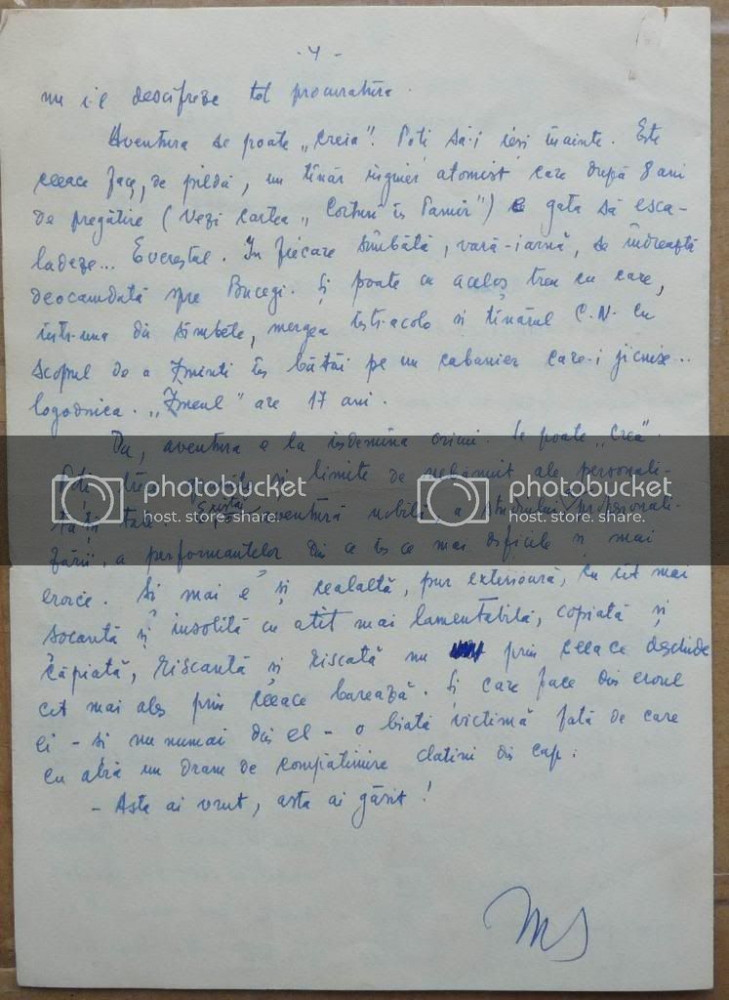 - 4 -
nu i-l descifreze tot procuratura.
Aventura se poate „creia”. Poti să-i iesi înainte. Este
ceeace face, de pildă, un tînăr inginer atomist care după 8 ani
de pregătire (vezi cartea „Corturi în Pamir”) e gata să esca-
ladeze... Everestul. In fiecare sîmbătă, vară-iarnă, se îndreaptă
deocamdată spre Bucegi. Si poate cu acelas tren cu care,
într-una din sîmbete, mergea într-acolo si tînărul C.N. cu
scopul de a zminti în bătăi pe un cabanier care-i jicnise..
logodnica. „Zmeul” are 17 ani.
Da, aventura e la indemîna oricui. Se poate „crea”.
limite de nebănuit ale personali-
tătii tale. Există aventură nobilă a studiului,
a performantelor din ce în ce mai dificile si mai
eroice. Si mai e si cealaltă, pur exterioară, cu cît mai
socantă si insolită cu atît mai lamentabilă, copiată si
căpiată, riscantă si riscată nu prin ceeace deschide
cît mai ales prin ceeace barează. Si care face din eroul
ei - si nu numai din el - o biată victimă fată de care
cu abia un dram de compătimire clatini din cap:
- Asta ai vrut, asta ai găsit!
MS
photobucket
host. store. share.
photobucket
host. store. share.